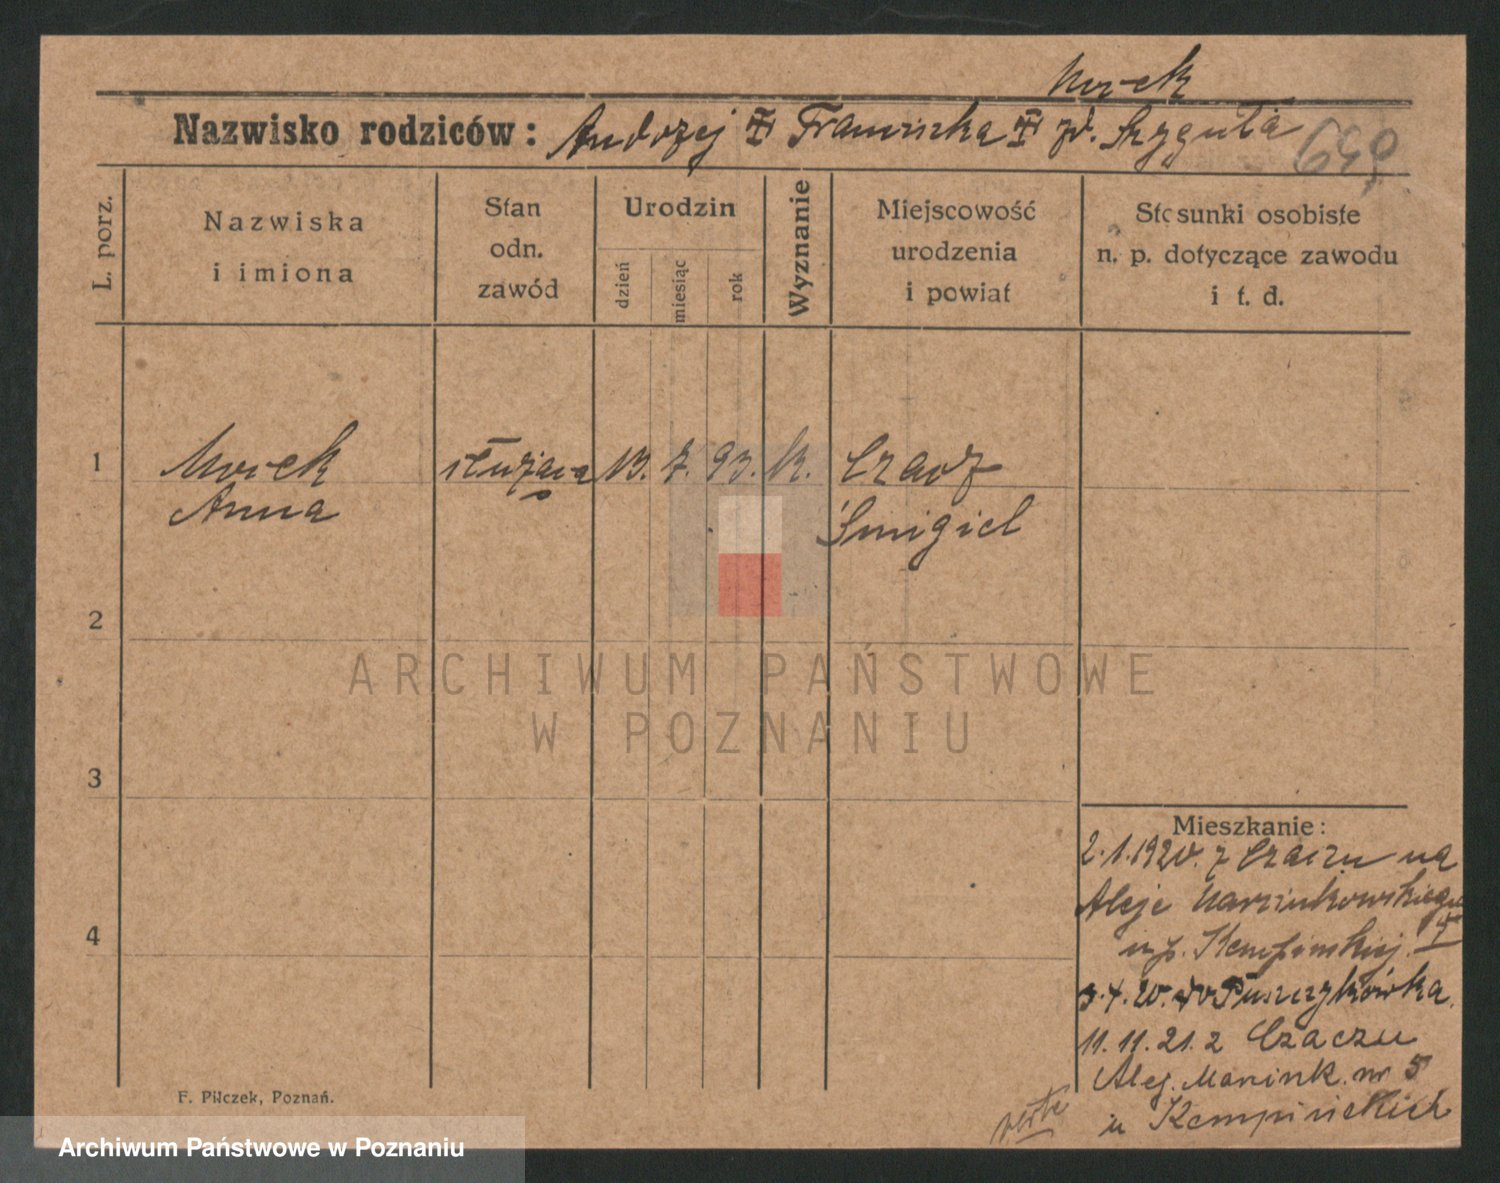 Nazwisko rodziców : Andrzej Franciszka zd. Szyguła
L. porz.
Nazwiska
i imiona
Stan
odn.
zawód
Urodzin
dzień
miesiąc
rok
Wyznanie
Miejscowość
urodzenia
i powiat
Stosunki osobiste
n. p. dotyczące zawodu
i t. d.
1
służąca
13. 7. 93. k.
Czacz
Anna
Śmigiel
2
3
4
Mieszkanie :
2.1.1920. z Czaczu na
Aleje Marcinkowskiego
u p. Kempińskiej.
3.4.20. do Puszczykówka.
11.11.21. z Czaczu
Alej. Marcink. nr 5
u Kempińskich
verte
F. Pilczek, Poznań.
ARCHIWUM PAŃSTWOWE
W POZNANIU
Archiwum Państwowe w Poznaniu